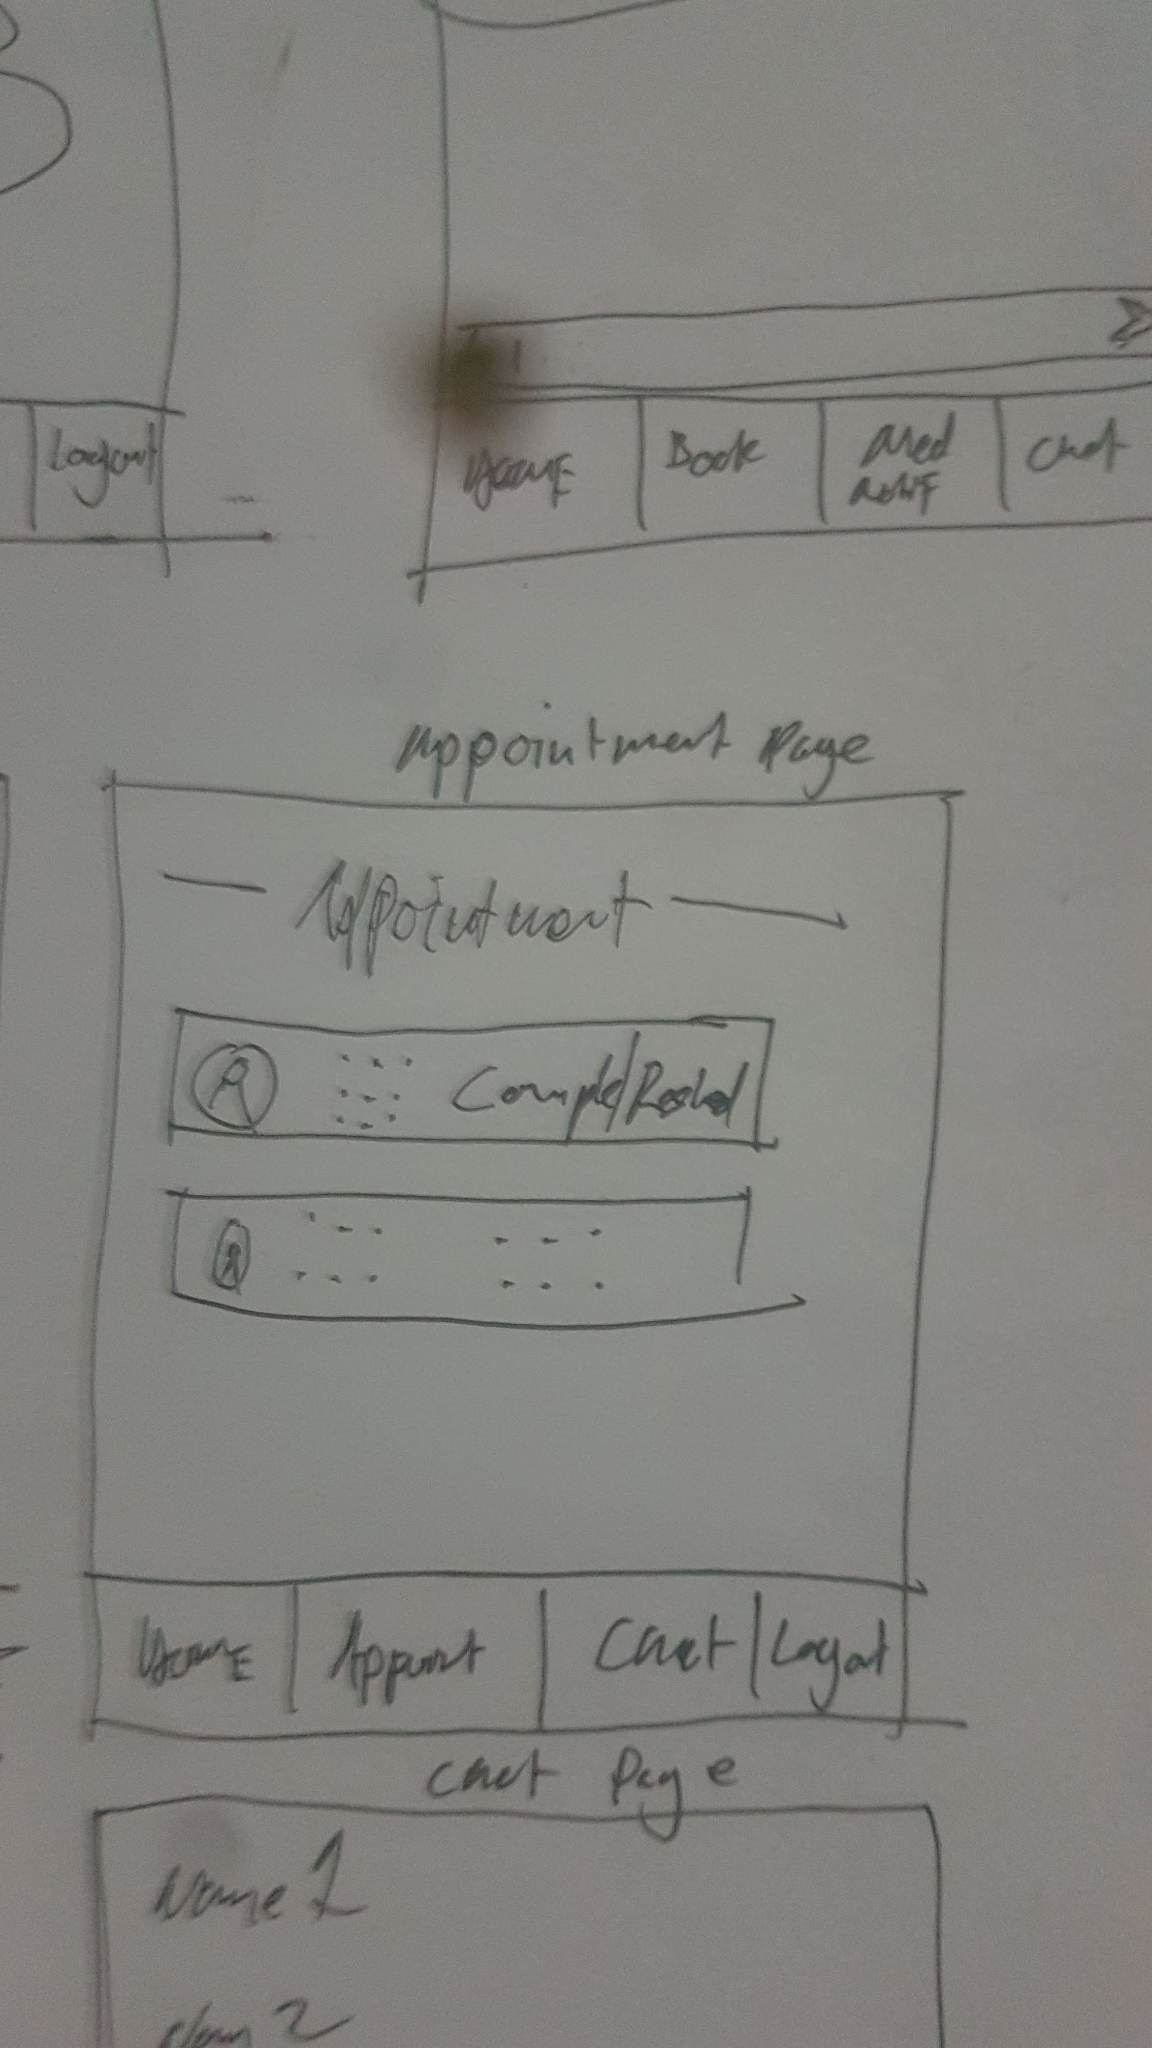 Logout
HOME Book Med Chat
Appointment Page
Appointment
Comple/Reshed
HOME Appoint Chat Logout
Chat Page
Name 1
2